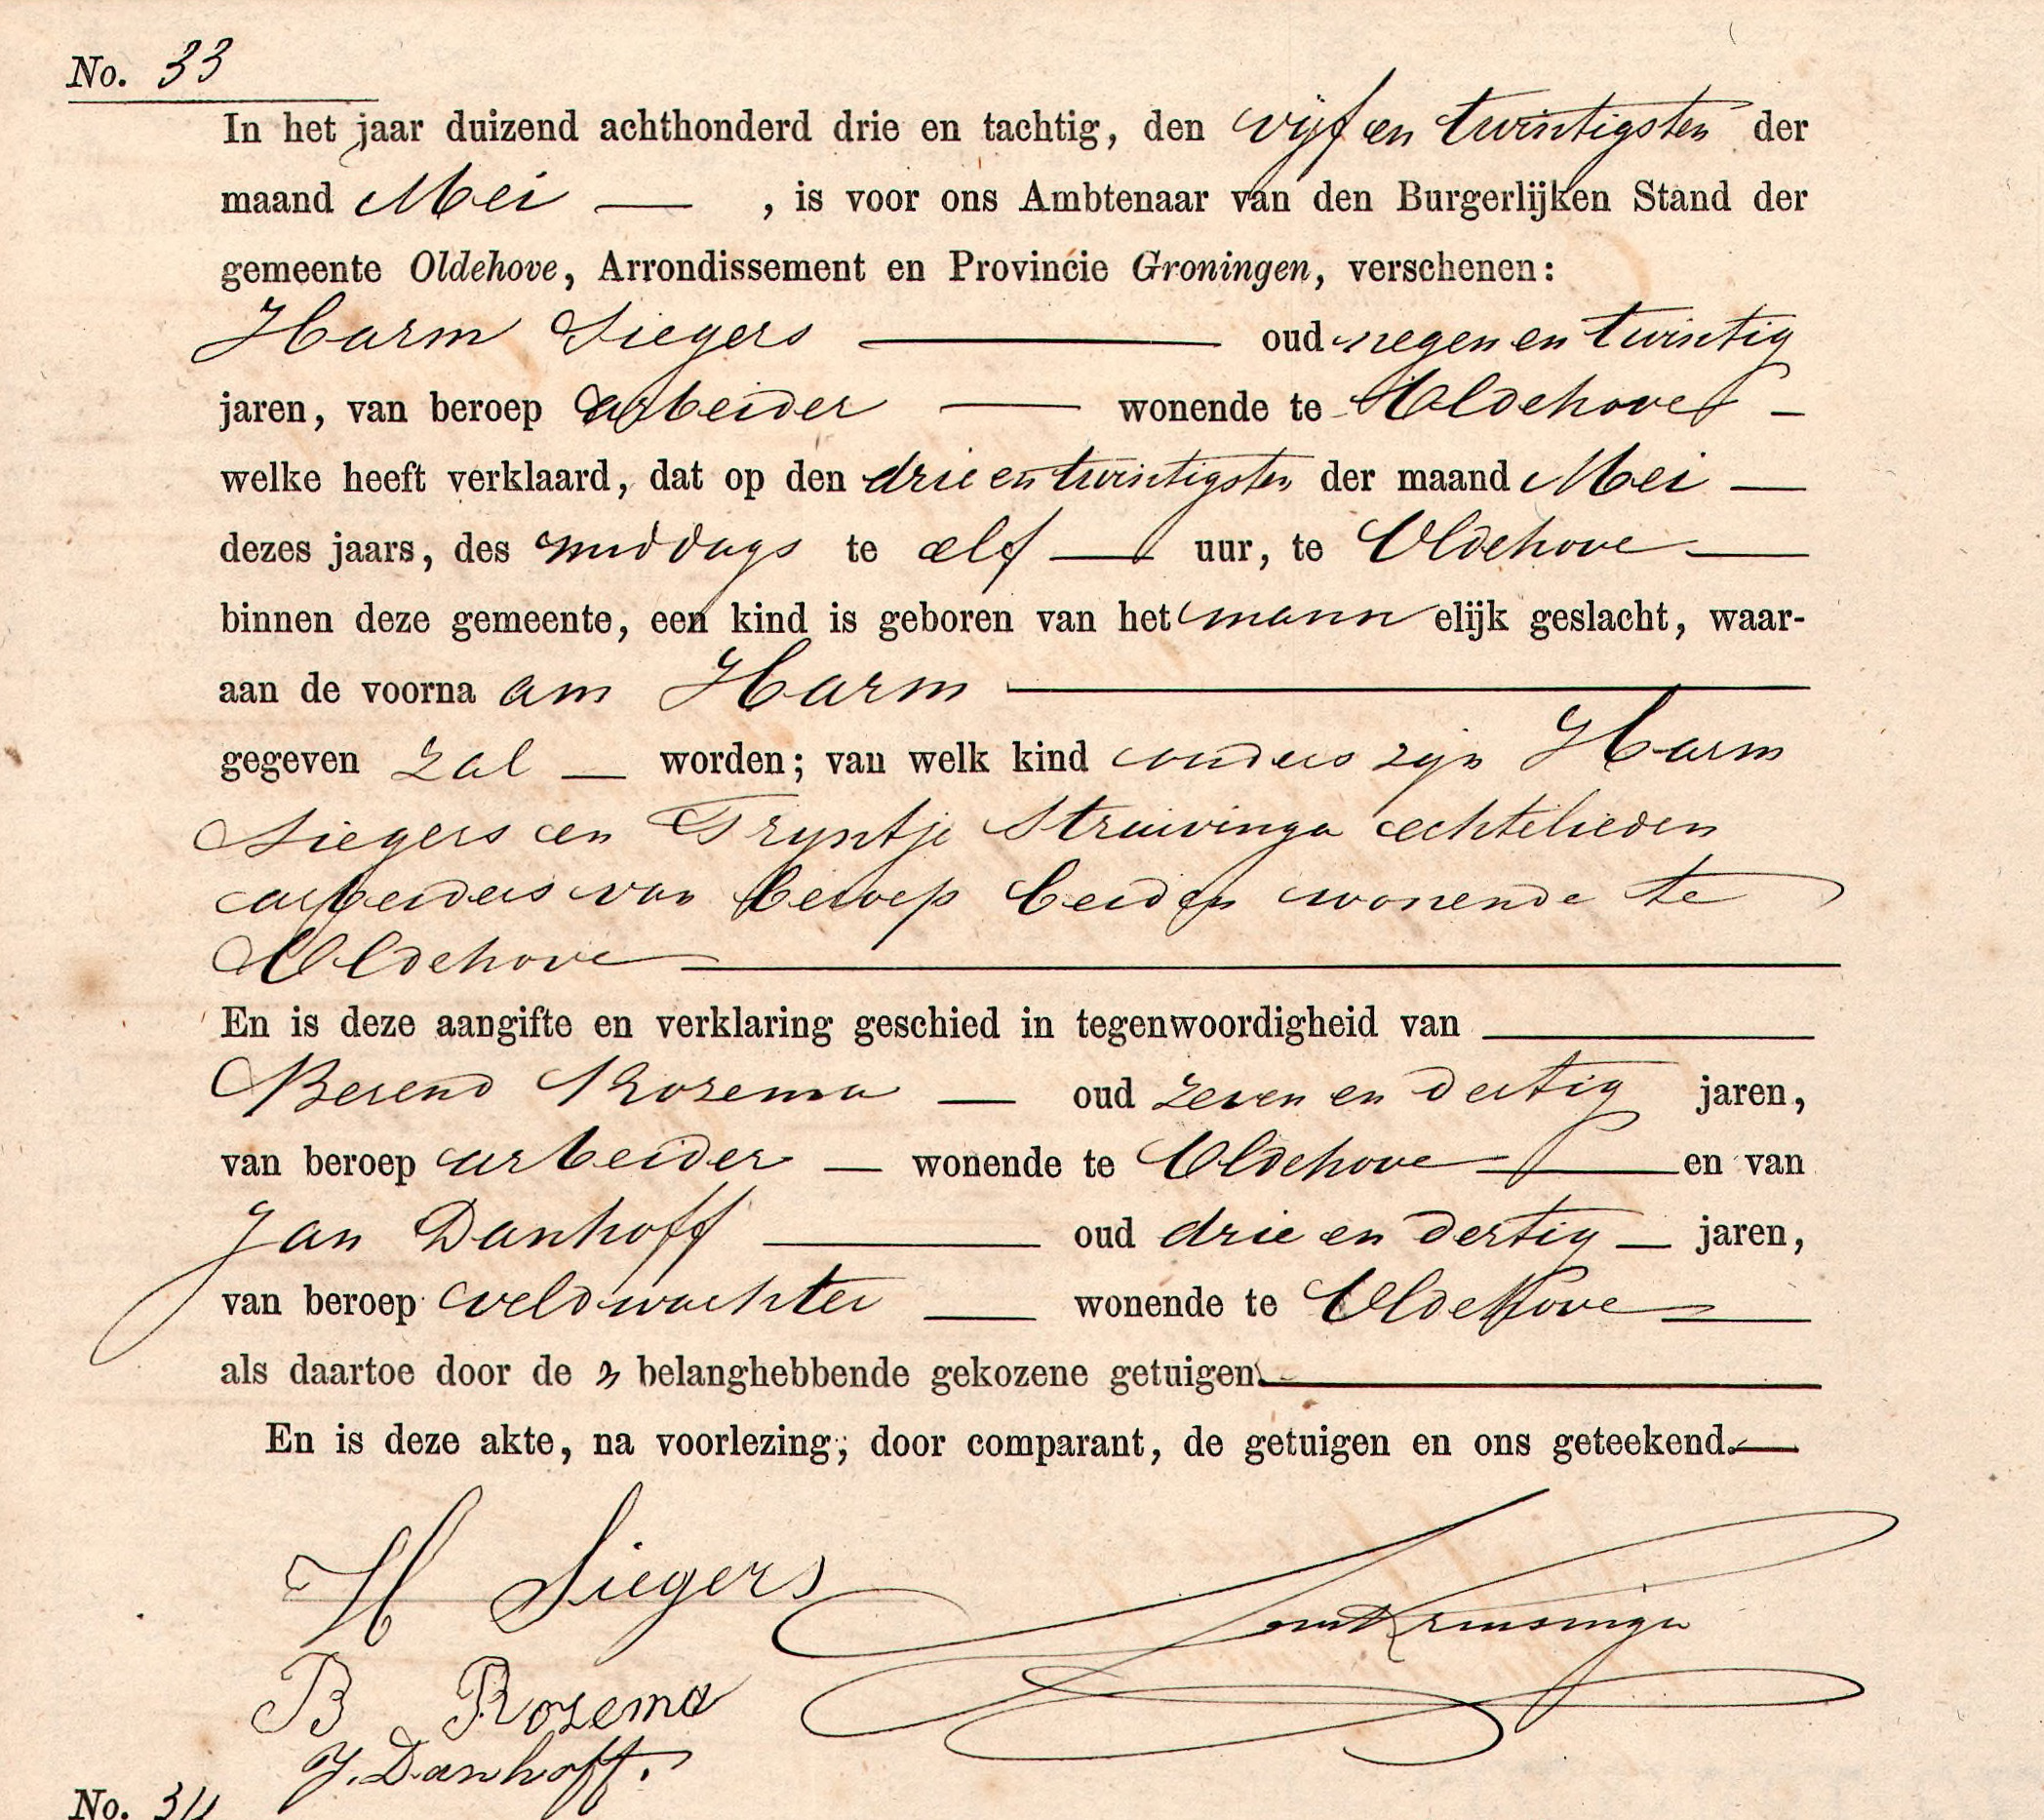 No. 33
In het jaar duizend achthonderd drie en tachtig, den vijf en twintigsten der
maand Mei — , is voor ons Ambtenaar van den Burgerlijken Stand der
gemeente Oldehove, Arrondissement en Provincie Groningen, verschenen:
Harm Siegers — oud negen en twintig
jaren, van beroep arbeider — wonende te Oldehove —
welke heeft verklaard, dat op den drie en twintigsten der maand Mei —
dezes jaars, des middags te elf — uur, te Oldehove —
binnen deze gemeente, een kind is geboren van het mann elijk geslacht, waar-
aan de voorna am Harm —
gegeven zal — worden; van welk kind ouders zijn Harm
Siegers en Tryntje Struivinga echtelieden
arbeiders van beroep beiden wonende te
Oldehove —
En is deze aangifte en verklaring geschied in tegenwoordigheid van —
Berend Rozema — oud zeven en dertig jaren,
van beroep arbeider — wonende te Oldehove — en van
Jan Danhoff — oud drie en dertig — jaren,
van beroep veldwachter — wonende te Oldehove —
als daartoe door de belanghebbende gekozene getuigen. —
En is deze akte, na voorlezing, door comparant, de getuigen en ons geteekend. —
H Siegers
Kruisinga
B Rozema
J. Danhoff.
No. 34